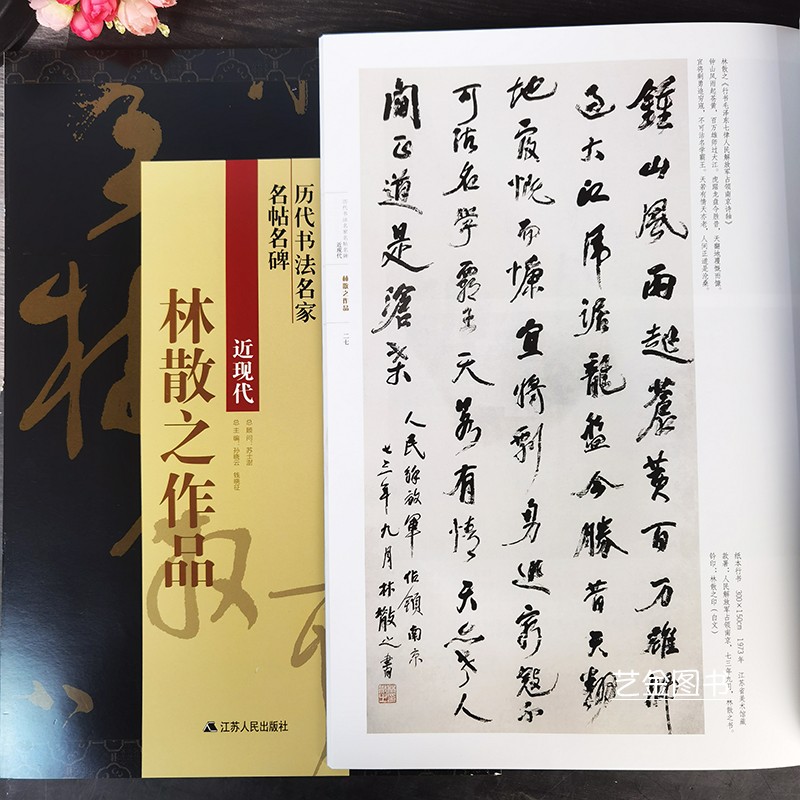 历代书法名家
名帖名碑
近现代
林散之作品
总顾问：苏士澍
总主编：孙晓云
江苏人民出版社
林散之《行书毛泽东七律人民解放军占领南京诗轴》
钟山风雨起苍黄，百万雄师过大江。虎踞龙盘今胜昔，天翻地覆慨而慷。
宜将剩勇追穷寇，不可沽名学霸王。天若有情天亦老，人间正道是沧桑。
鍾山風雨起蒼黄百万雄師
过大江虎踞龍盘今勝昔天翻
地覆慨而慷宜将剩勇追窮寇不
可沽名学霸王天若有情天亦老人
間正道是滄桑
人民解放軍佔領南京
七三年九月林散之書
历代书法名家名帖名碑
近现代
林散之作品
二七
纸本行书 300×150cm 1973年 江苏省美术馆藏
款署：人民解放军占领南京。七三年九月，林散之书。
钤印：林散之印（白文）
艺金图书